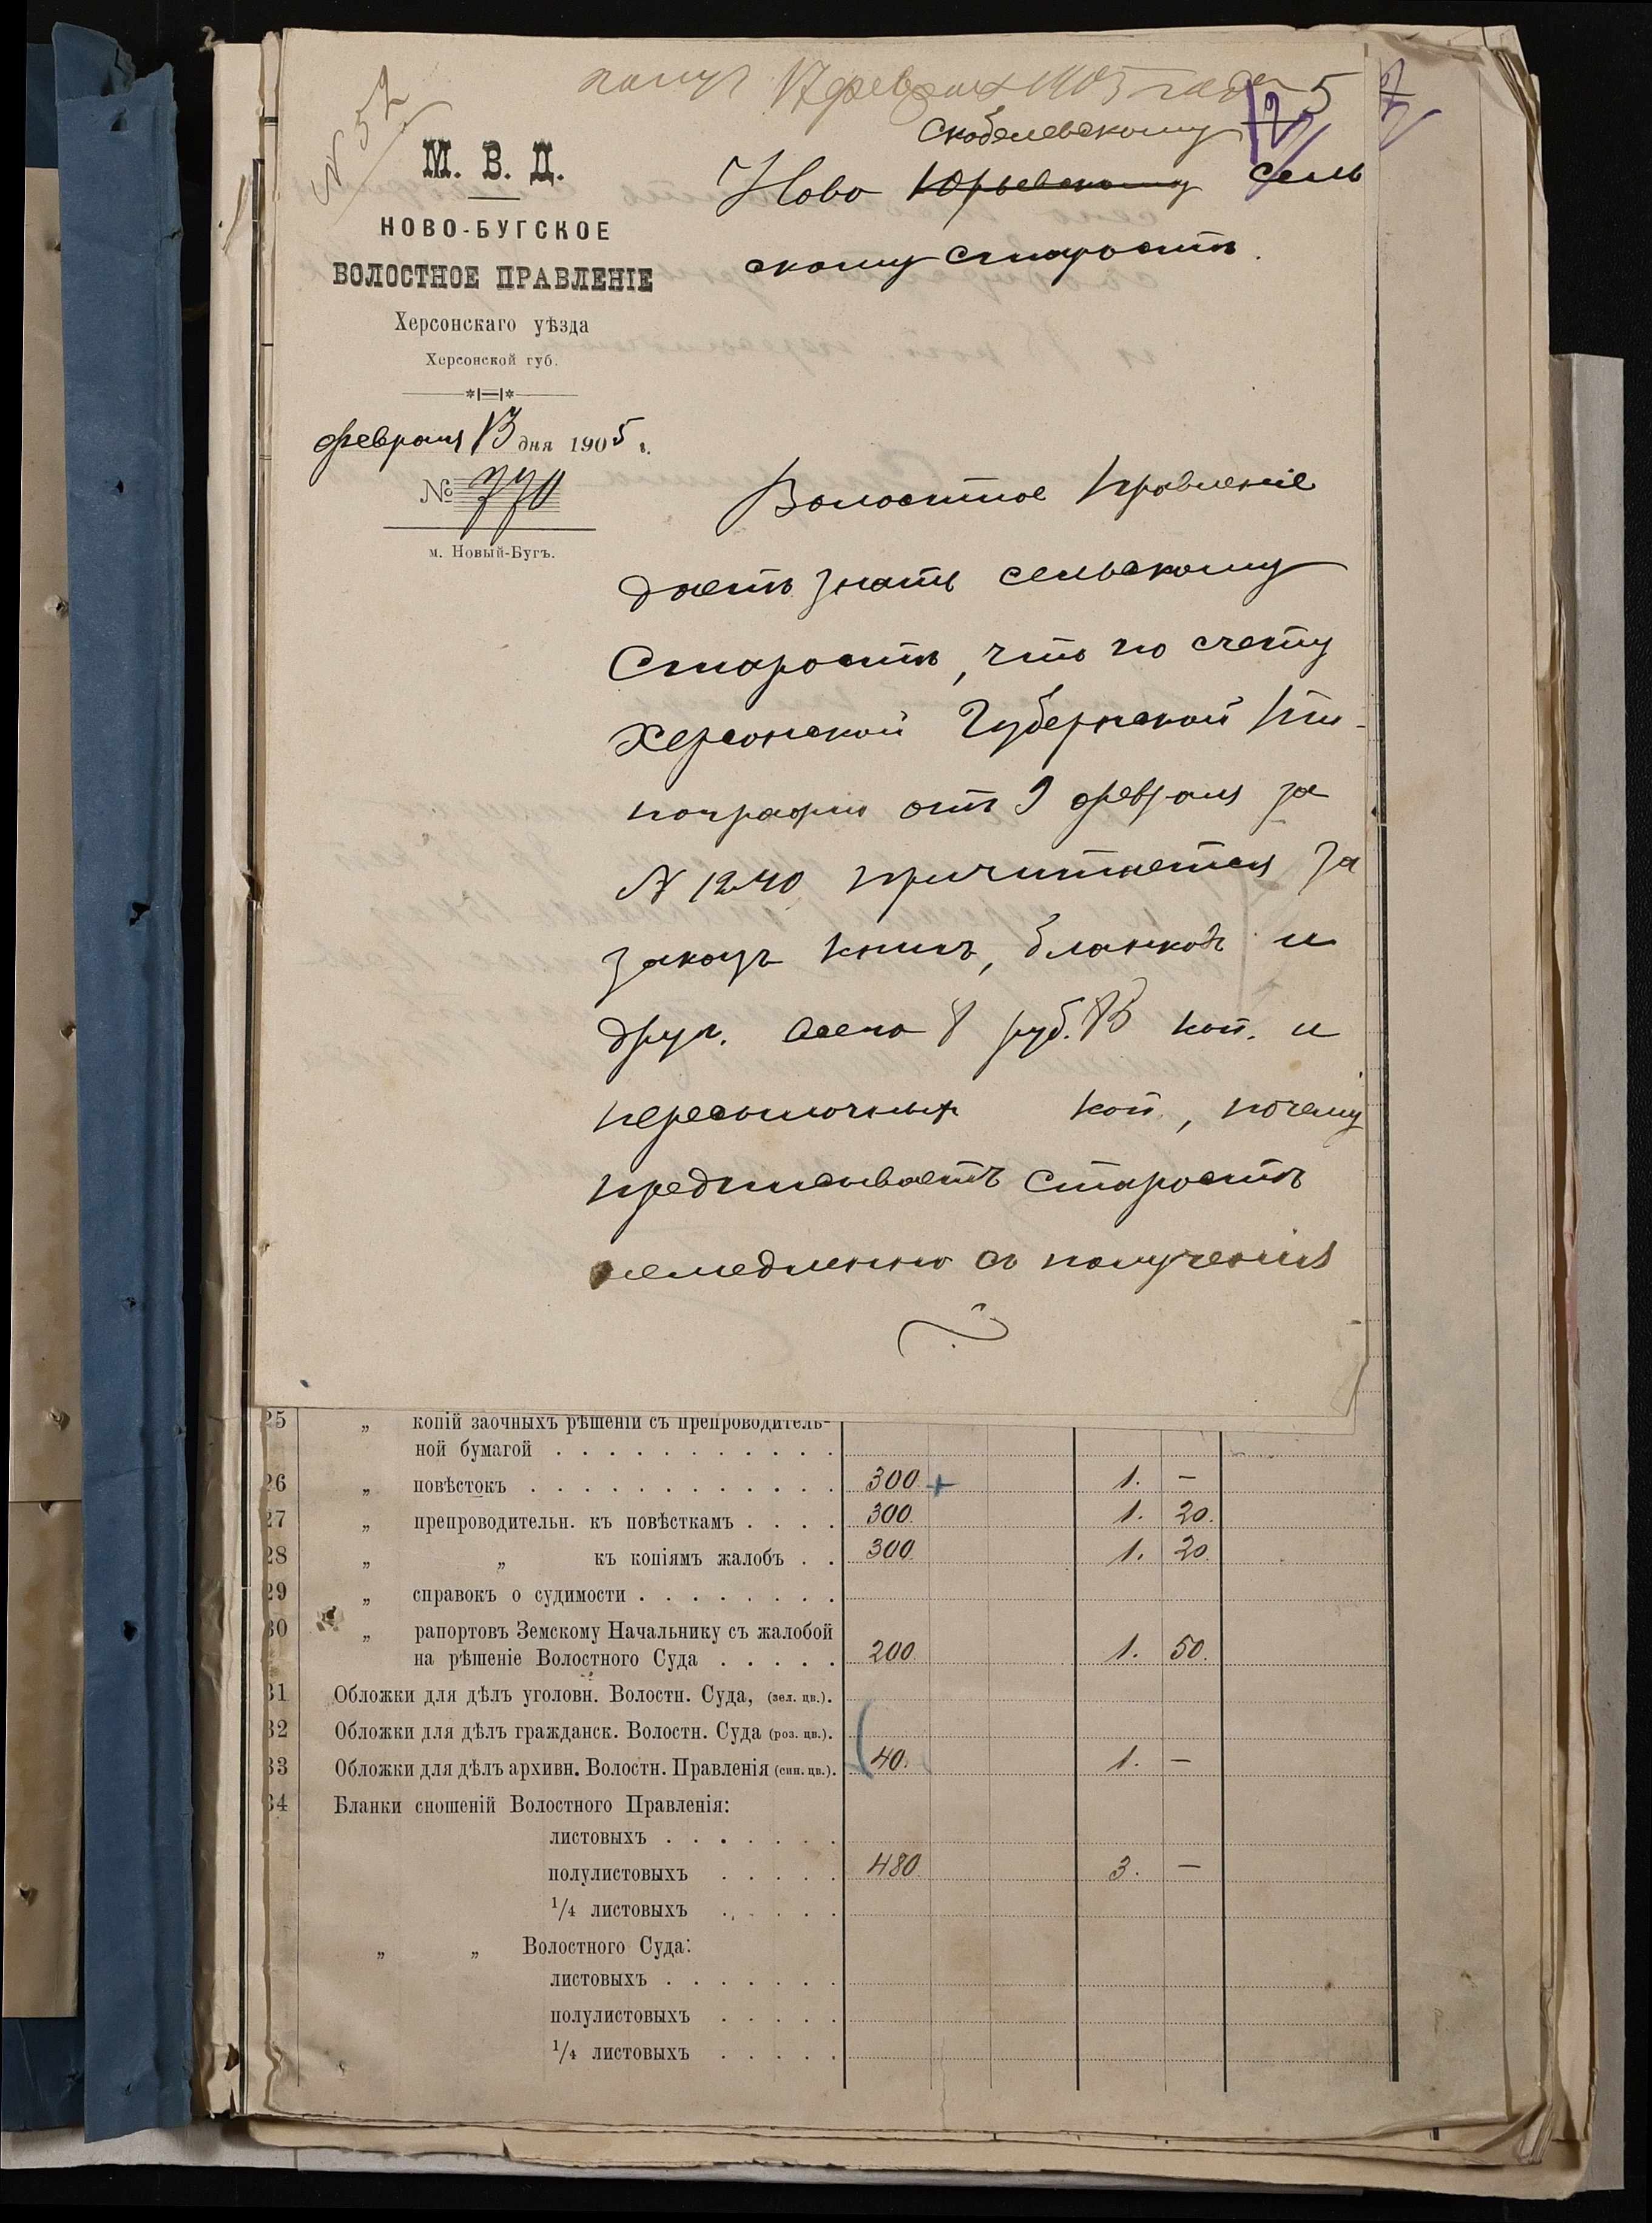 получ 17 февраля 1905 года 5
N 52
М. В. Д.
НОВО-БУГСКОЕ
ВОЛОСТНОЕ ПРАВЛЕНІЕ
Херсонскаго уѣзда
Херсонской губ.
февраля 13 дня 1905 г.
№ 770
м. Новый-Бугъ.
Скобелевскому
Ново Юрьевскому Сель
скому старостѣ.
Волостное Правленіе
даетъ знать сельскому
Старостѣ, что по счету
Херсонской Губернской Ти-
пографіи отъ 9 февраля за
N 1240 причитается за
заказъ книгъ, бланковъ и
друг. всего 8 руб. 83 коп. и
пересылочныхъ коп., почему
предписываетъ Старостѣ
немедленно съ полученія
25 „ копій заочныхъ рѣшеній съ препроводитель-
ной бумагой
26 „ повѣстокъ 300 + 1. —
27 „ препроводительн. къ повѣсткамъ 300. 1. 20.
28 „ „ къ копіямъ жалобъ 300. 1. 20.
29 „ справокъ о судимости
30 „ рапортовъ Земскому Начальнику съ жалобой
на рѣшеніе Волостного Суда 200. 1. 50.
31 Обложки для дѣлъ уголовн. Волостн. Суда, (зел. цв.).
32 Обложки для дѣлъ гражданск. Волостн. Суда (роз. цв.).
33 Обложки для дѣлъ архивн. Волостн. Правленія (син. цв.). 40. 1. —
34 Бланки сношеній Волостного Правленія:
листовыхъ
полулистовыхъ 480. 3. —
1/4 листовыхъ
„ „ Волостного Суда:
листовыхъ
полулистовыхъ
1/4 листовыхъ